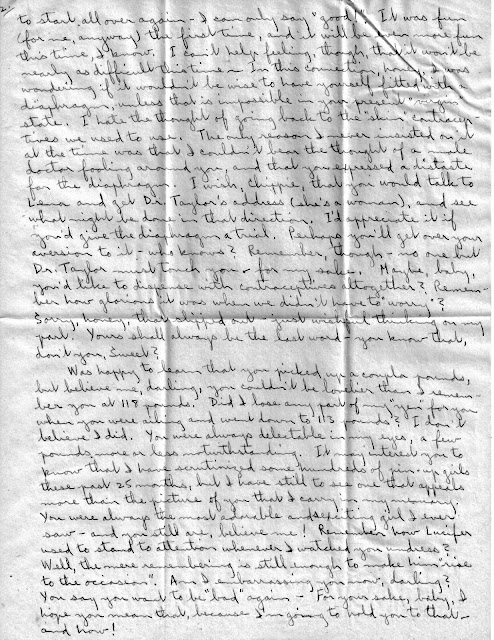 2/
to start all over again - I can only say "good"! It was fun
(for me, anyway) the first time, and it will be even more fun
this time, I know. I can't help feeling, though, that it won't be
nearly as difficult this time - In this connection, honey, I was
wondering if it wouldn't be wise to have yourself fitted with a
diaphragm, unless that is impossible in your present "virgin"
state. I hate the thought of going back to the "skin" contracep-
tives we used to use. The only reason I never insisted on it
at the time was that I couldn't bear the thought of a male
doctor fooling around you, and that you expressed a distaste
for the diaphragm. I wish, chippie, that you would talk to
Lena and get Dr. Taylor's address (she's a woman), and see
what might be done in that direction. I'd appreciate it if
you'd give the diaphragm a trial. Perhaps you'll get over your
aversion to it - who knows? Remember, though - no one but
Dr. Taylor must touch you - for my sake. Maybe, baby,
you'd like to dispense with contraceptives altogether? Remem-
ber how glorious it was when we didn't have to "worry"?
Sorry, honey, that slipped out - just wishful thinking on my
part. Yours shall always be the last word - you know that,
don't you, Sweet?
Was happy to learn that you picked up a coupla pounds,
but believe me, darling, you couldn't be lovelier than I remem-
ber you at 118 pounds. Did I lose any part of my "yen" for you
when you were ailing and went down to 113 pounds? I don't
believe I did. You were always delectable in my eyes, a few
pounds more or less notwithstanding. It may interest you to
know that I have scrutinized some hundreds of pin-up girls
these past 25 months, but I have still to see one that appeals
more than the picture of you that I carry in my memory.
You were always the most adorable and exciting girl I ever
saw - and you still are, believe me! Remember how Lucifer
used to stand to attention whenever I watched you undress?
Well, the mere remembering is still enough to make him "rise
to the occasion". Am I embarrassing you now, darling?
You say you want to be "bad" again - For your sake, baby, I
hope you mean that, because I'm going to hold you to that -
and how!